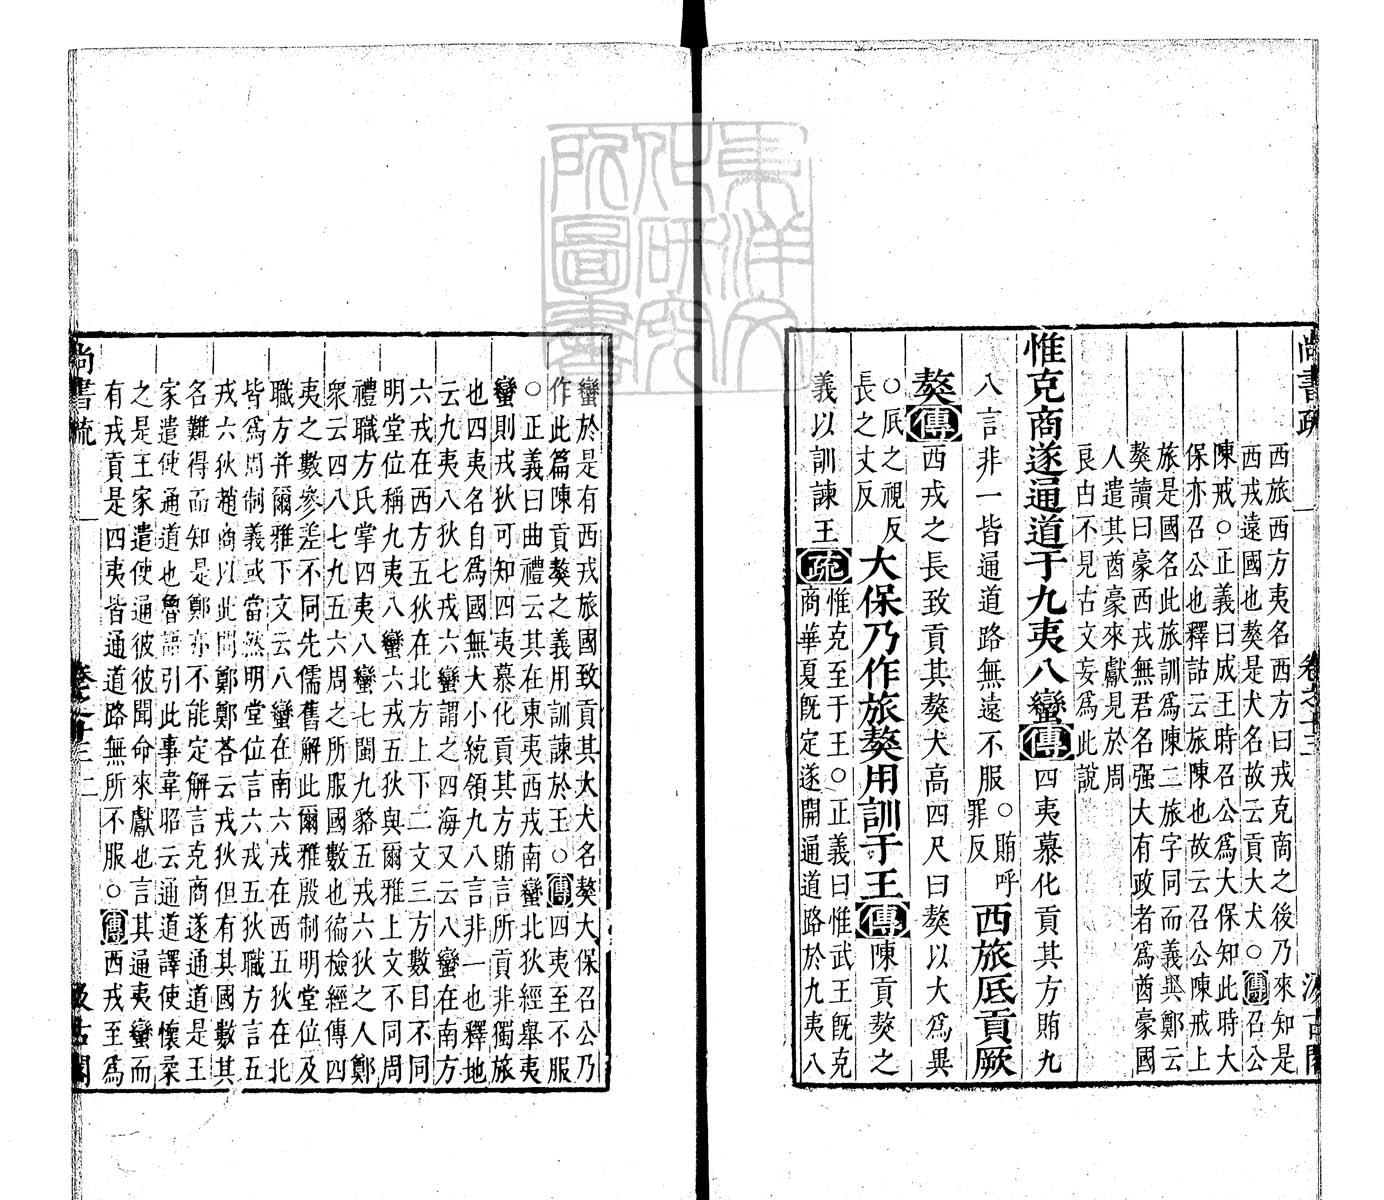 西旅西方夷名西方曰戎克商之後乃來知是
西戎遠國也獒是犬名故云貢大犬○傳召公
陳戒○正義曰成王時召公爲大保知此時大
保亦召公也釋詁云旅陳也故云召公陳戒上
旅是國名此旅訓爲陳二旅字同而義異鄭云
獒讀曰豪西戎無君名强大有政者爲酋豪國
人遣其酋豪來獻見於周
良由不見古文妄爲此說
惟克商遂通道于九夷八蠻傳四夷慕化貢其方賄九
八言非一皆通道路無遠不服○賄呼罪反西旅厎貢厥
獒傳西戎之長致貢其獒犬高四尺曰獒以大爲異
○厎之視反長之丈反大保乃作旅獒用訓于王傳陳貢獒之
義以訓諫王疏惟克至于王○正義曰惟武王旣克
商華夏旣定遂開通道路於九夷八
尚書疏 卷之十三 一 汲古閣
蠻於是有西戎旅國致貢其大犬名獒大保召公乃
作此篇陳貢獒之義用訓諫於王○傳四夷至不服
○正義曰曲禮云其在東夷西戎南蠻北狄經舉夷
蠻則戎狄可知四夷慕化貢其方賄言所貢非獨旅
也四夷名自爲國無大小統領九八言非一也釋地
云九夷八狄七戎六蠻謂之四海又云八蠻在南方
六戎在西方五狄在北方上下二文三方數目不同
明堂位稱九夷八蠻六戎五狄與爾雅上文不同周
禮職方氏掌四夷八蠻七閩九貉五戎六狄之人鄭
衆云四八七九五六周之所服國數也徧檢經傳四
夷之數參差不同先儒舊解此爾雅殷制明堂位及
職方并爾雅下文云八蠻在南六戎在西五狄在北
皆爲周制義或當然明堂位言六戎五狄職方言五
戎六狄趙商以此問鄭鄭荅云戎狄但有其國數其
名難得而知是鄭亦不能定解言克商遂通道是王
家遣使通道也魯語引此事韋昭云通道譯使懷柔
之是王家遣使通彼彼聞命來獻也言其通夷蠻而
有戎貢是四夷皆通道路無所不服○傳西戎至爲
尚書疏 卷之十三 二 汲古閣
東洋文
化研究
所圖書